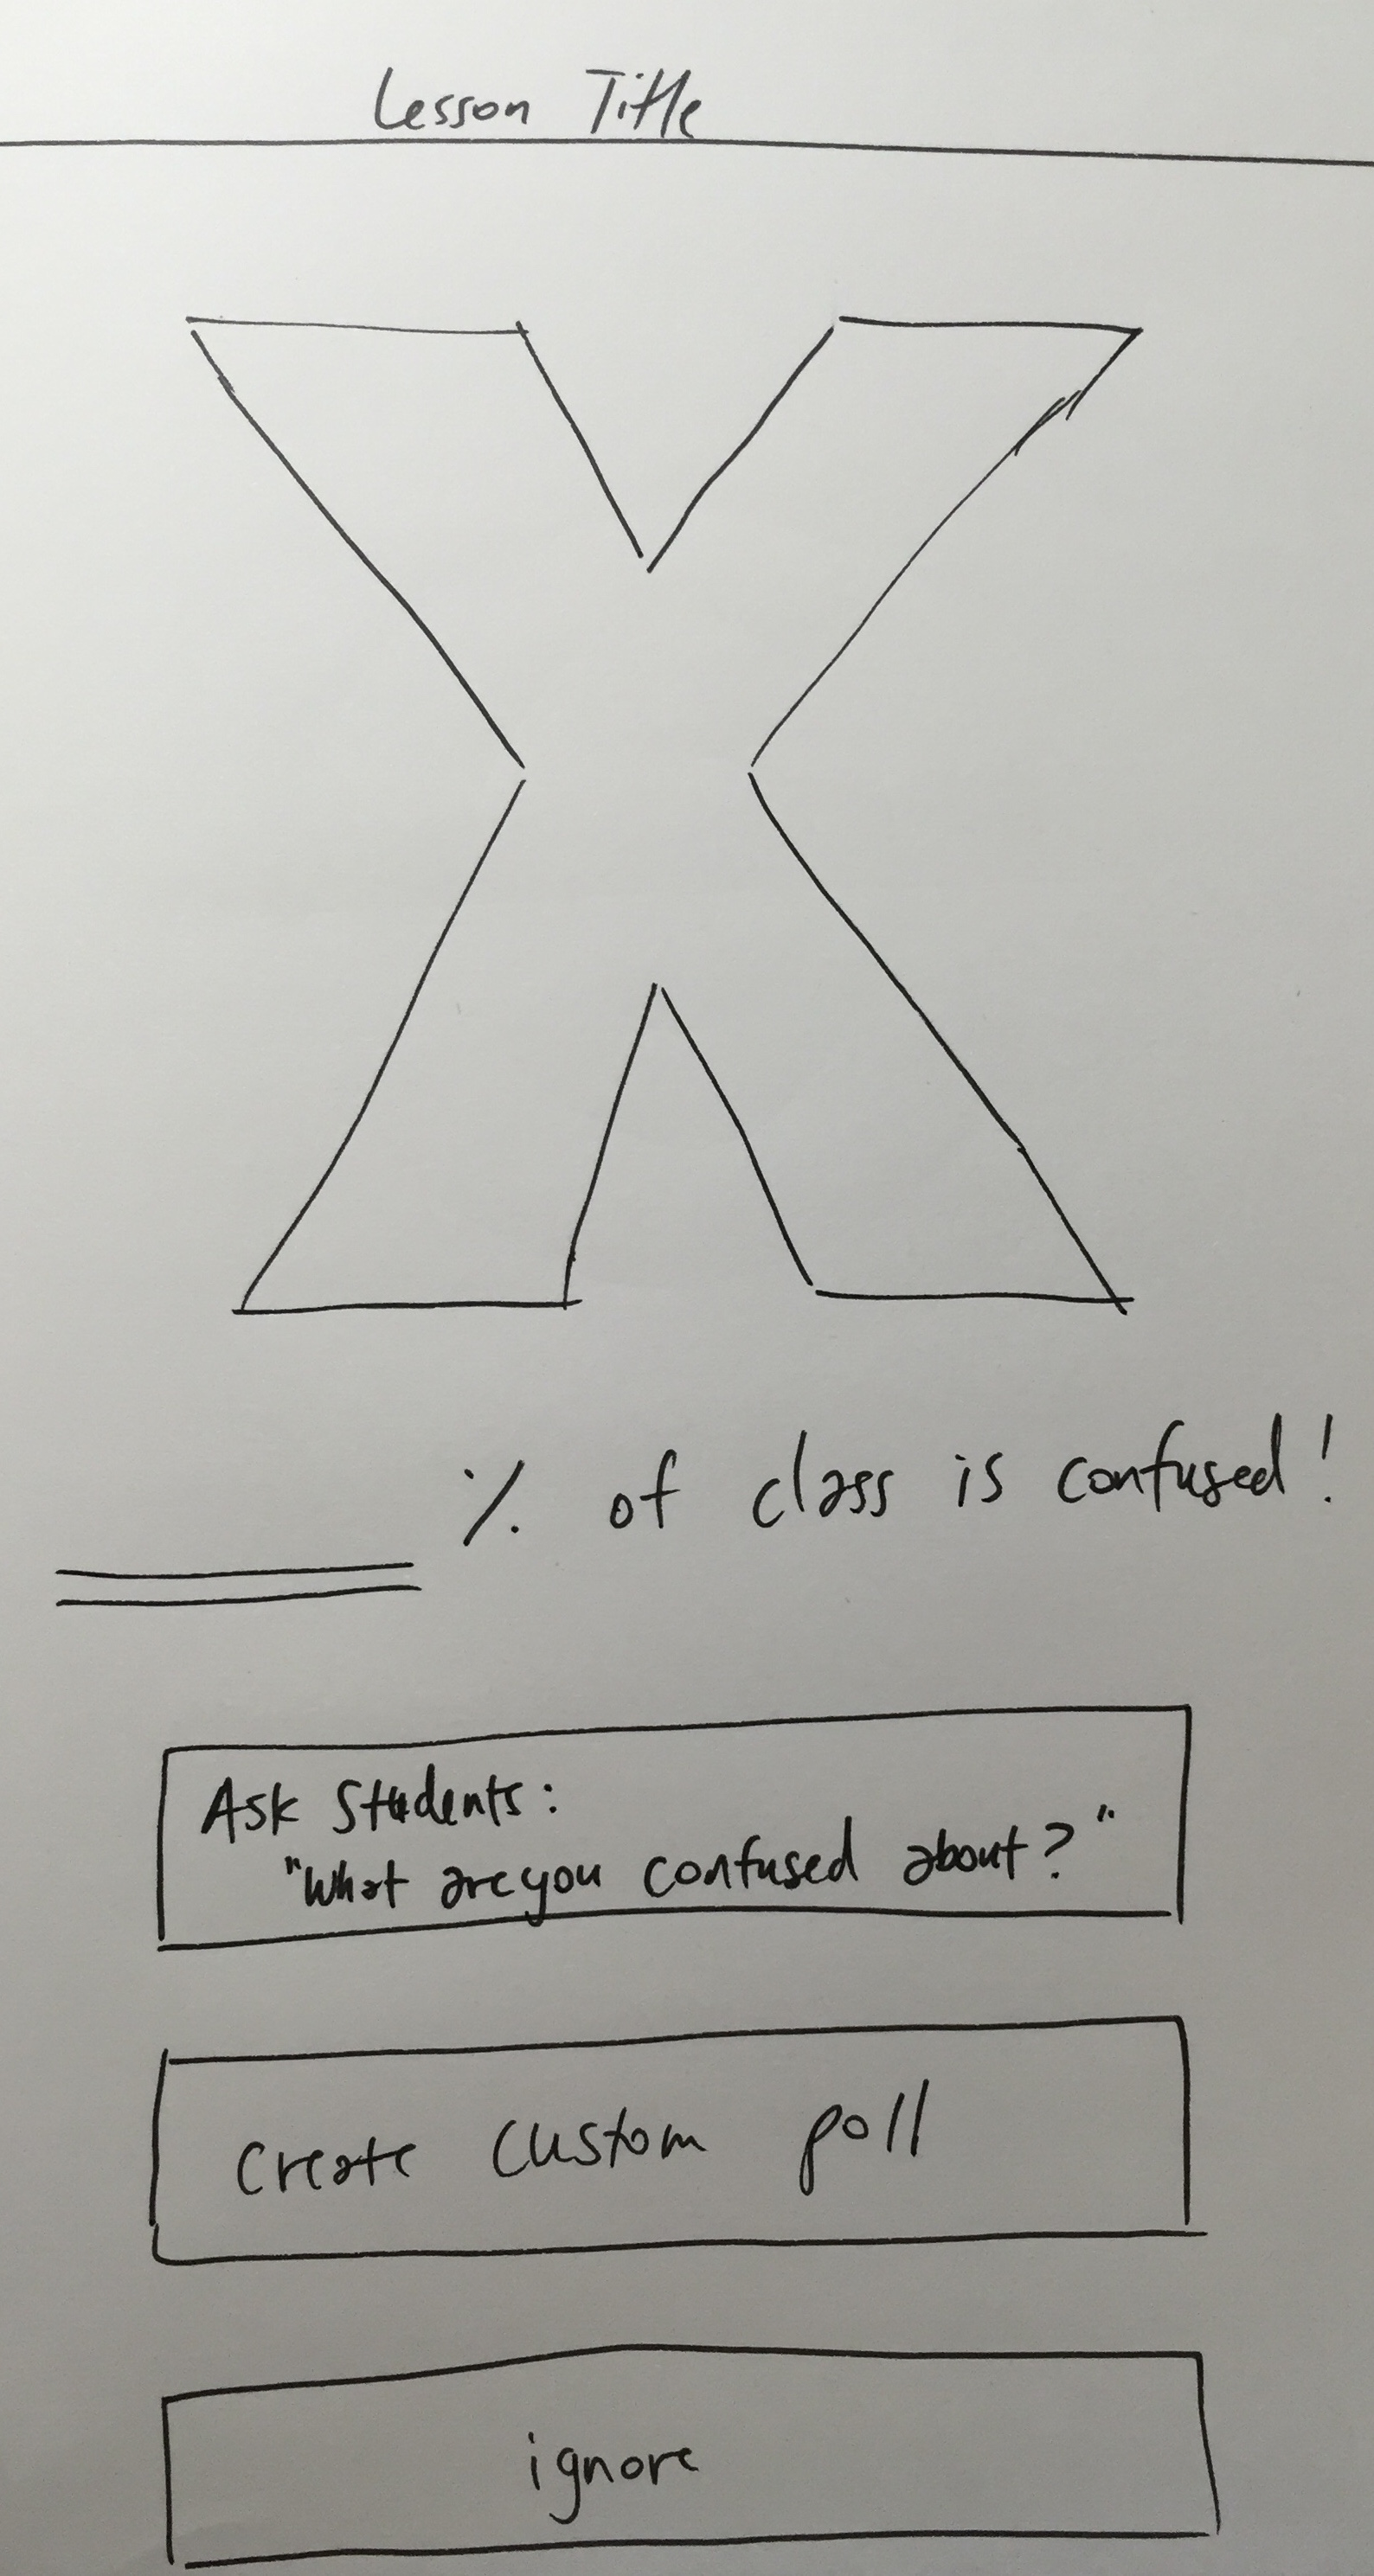 Lesson Title
X
% of class is confused!
Ask Students:
"What are you confused about?"
Create custom poll
ignore